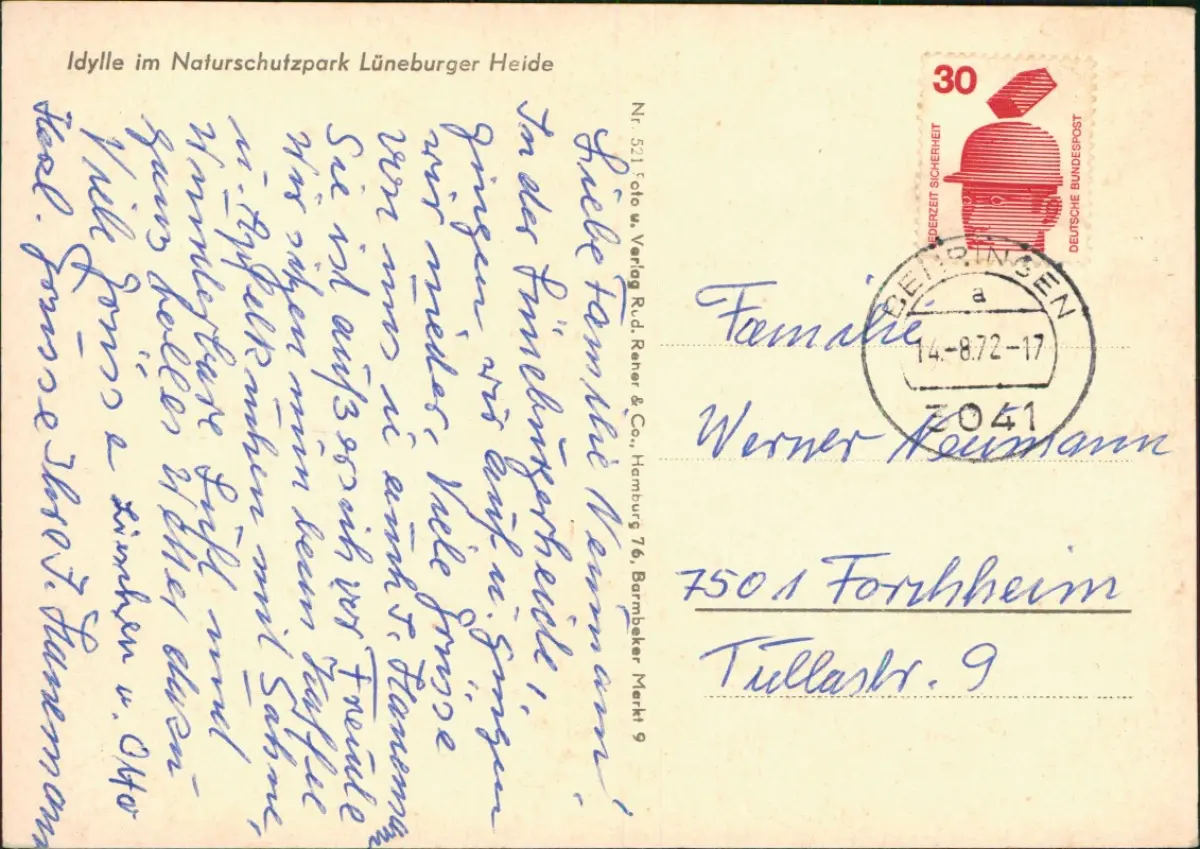 Idylle im Naturschutzpark Lüneburger Heide
Liebe Familie Neumann!
In der Lüneburgerheide,
gingen wir auf u. gingen
wir nieder, Viele Grüsse
von uns u auch F. Hanemann
Sie ist außer sich vor Freude
Wir sitzen nun beim Kaffee
u. Apfelkuchen mit Sahne,
Wunderbare Luft und
ganz tolles Wetter dazu
Viele Grüsse
Lieschen u. Otto
Herzl. Grüsse Ihre F. Hanemann
Nr. 521 Foto u. Verlag Rud. Reher & Co., Hamburg 76, Barmbeker Markt 9
30
JEDERZEIT SICHERHEIT
DEUTSCHE BUNDESPOST
BEHRINGEN
a
14.-8.72-17
3041
Familie
Werner Neumann
7501 Forchheim
Tullastr. 9